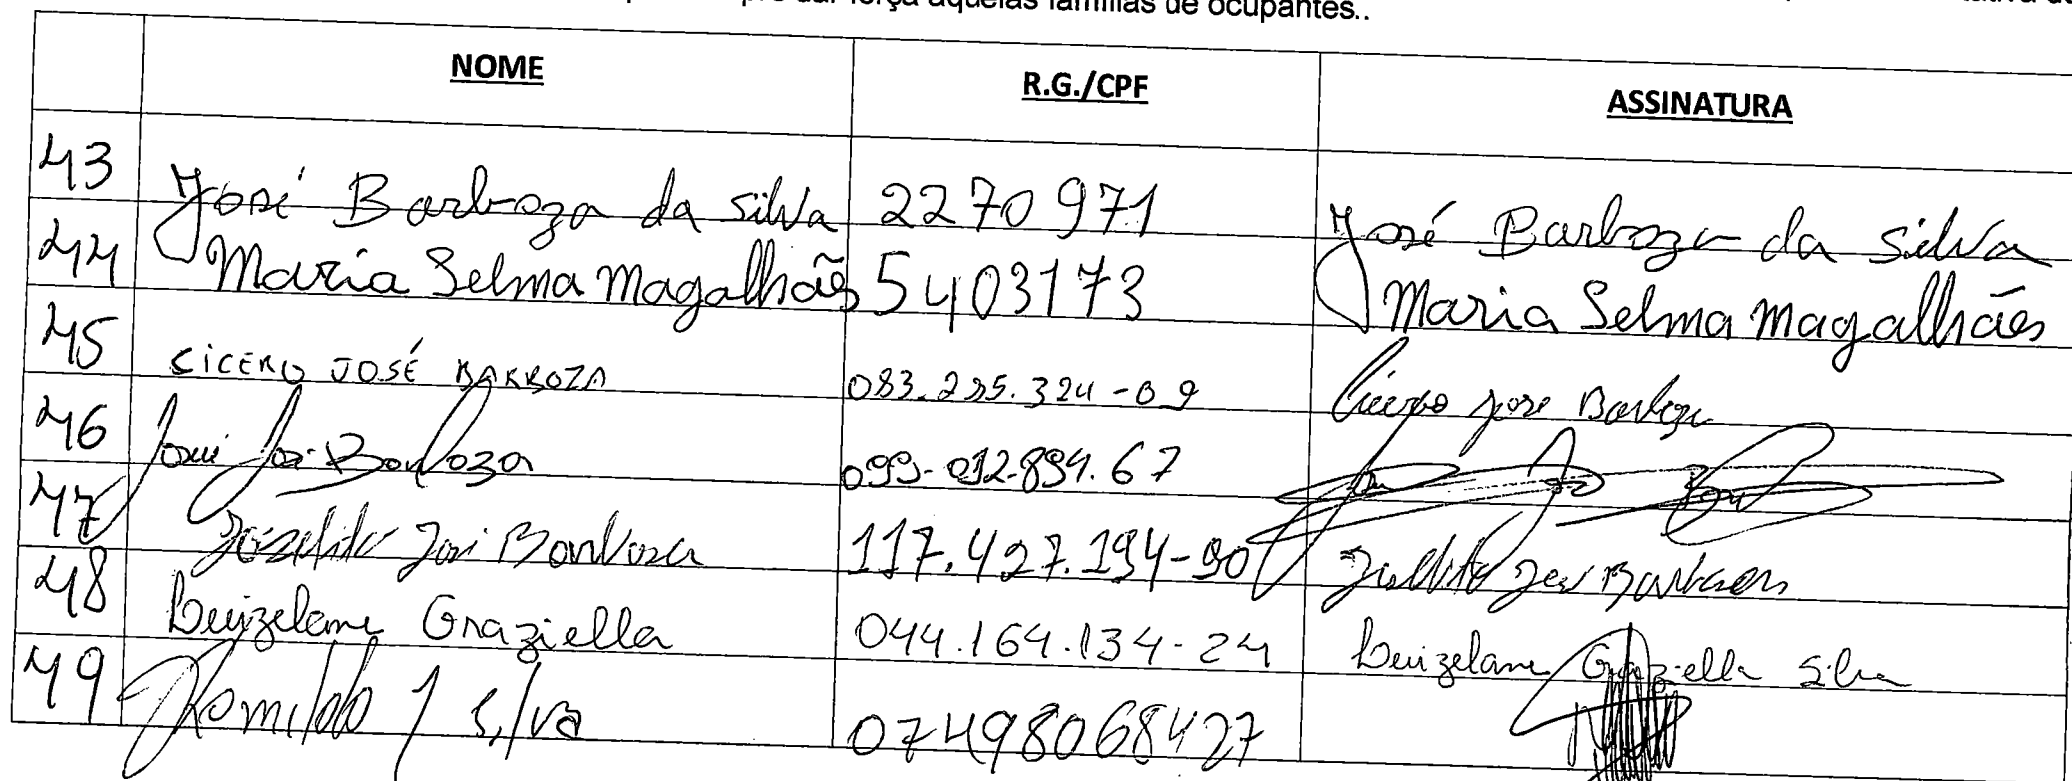 dar força àquelas famílias de ocupantes..
NOME R.G./CPF ASSINATURA
43 José Barboza da silva 2270971 José Barboza da silva
44 Maria Selma Magalhães 5403173 Maria Selma Magalhães
45 CICERO JOSÉ BARBOZA 083.235.324-09 Cicero jose Barboza
46 José Barboza 099-012.894.67
47 Joselito José Barboza 117.427.194-90 Joselito José Barboza
48 Deuzelane Graziella 044.164.134-24 Deuzelane Graziella Silva
49 Romildo J Silva 07498068427